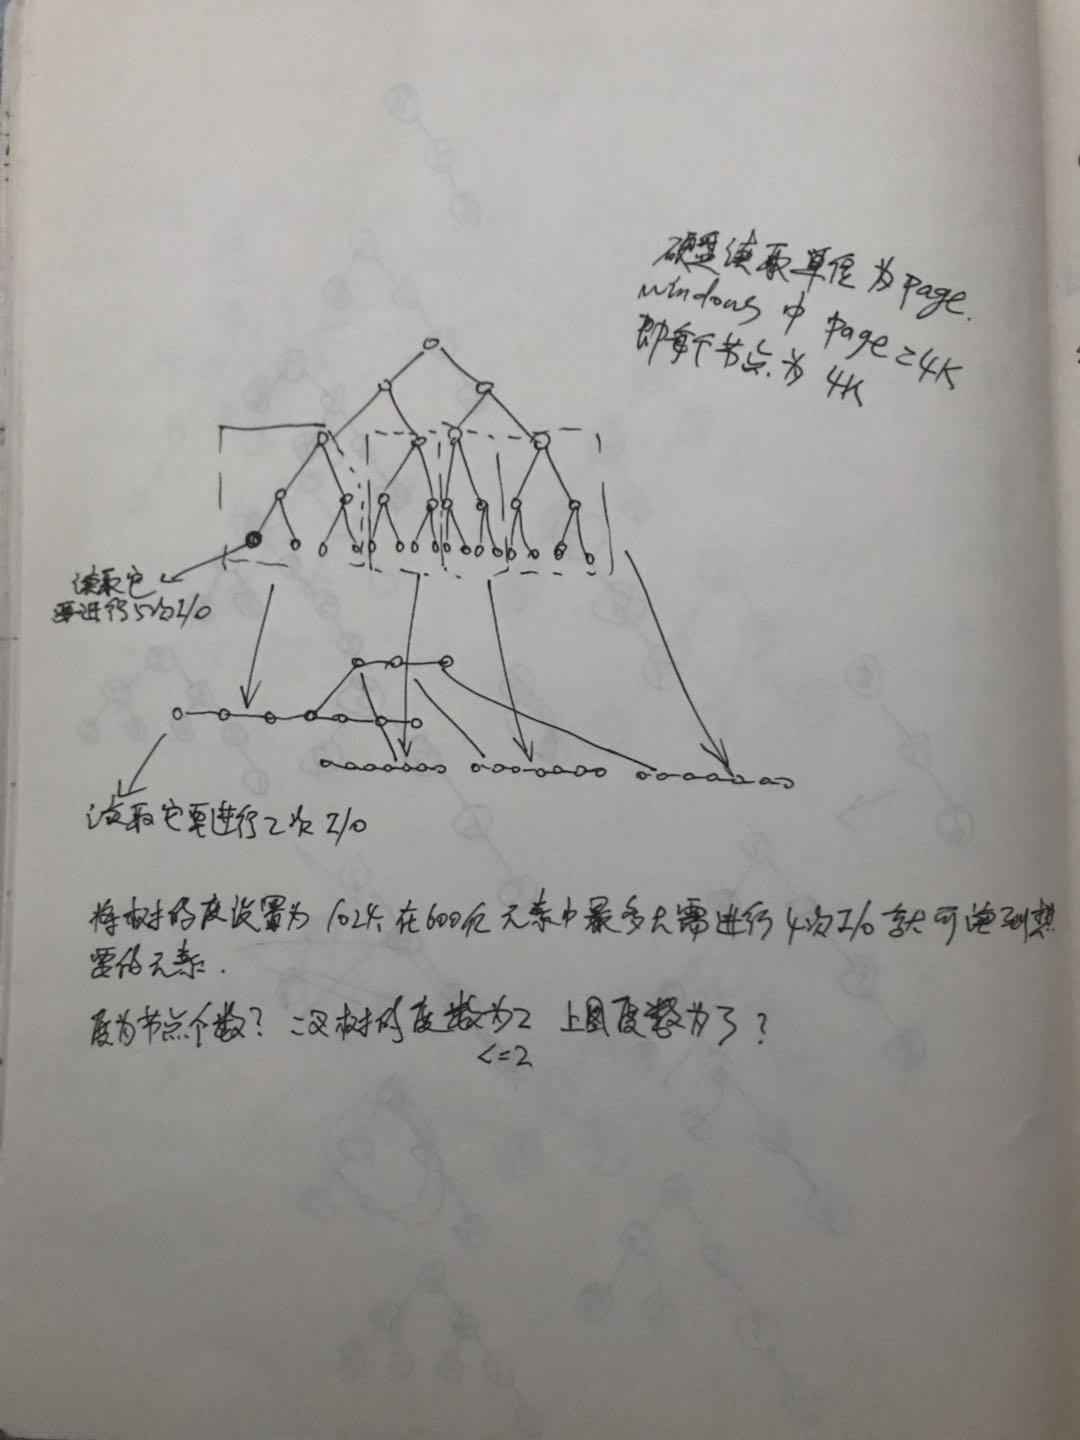 硬盘读取单位为page.
windows 中 page=4K
即每个节点为 4K
读取它
要进行5次I/O
读取它要进行2次 I/O
将树的度设置为 1024 在600亿元素中最多只需进行4次I/O 就可读到想
要的元素.
度为节点个数? 二叉树的度数为2 上图度数为3?
<=2